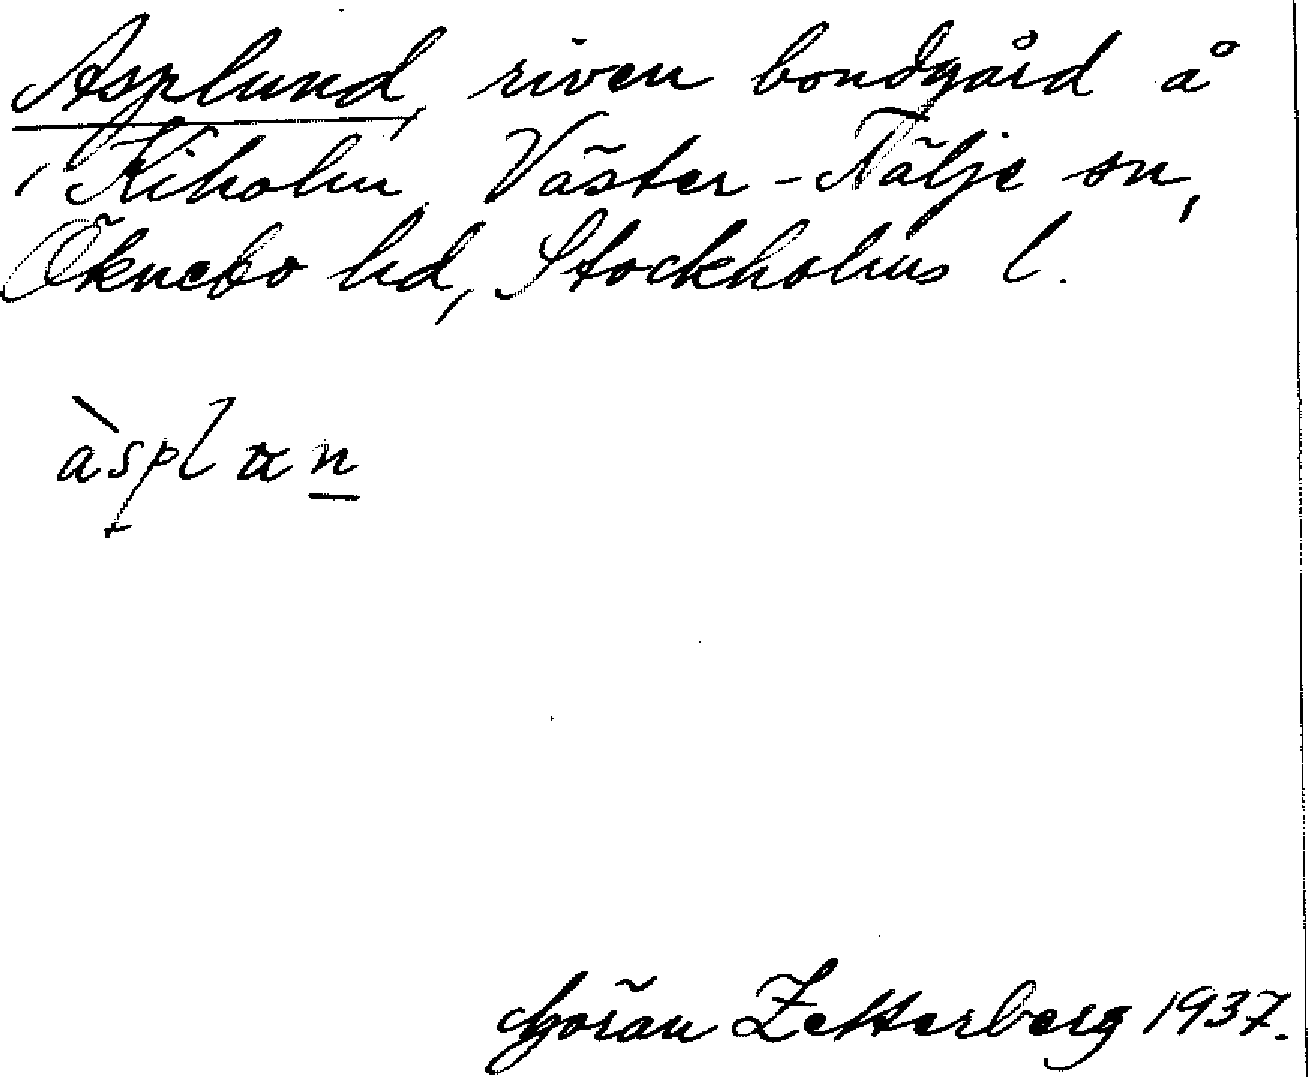 Asplund, riven bondgård å
Kiholm Väster-Tälje sn,
Öknebo hd, Stockholms l.
àsplαn
Göran Zetterberg 1937.